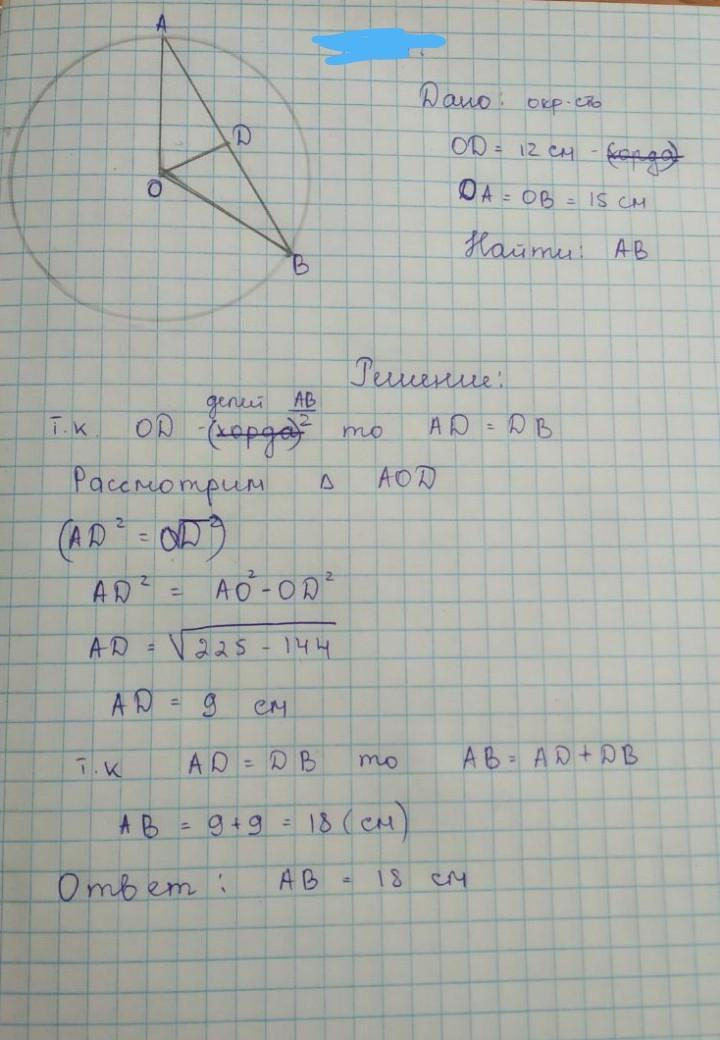 A
D
O
B
Дано: окр-сть
OD = 12 см - (хорда)
OA = OB = 15 см
Найти: AB
Решение:
делит AB/2
т.к OD -(хорда) то AD = DB
Рассмотрим Δ AOD
(AD² = OD²)
AD² = AO² - OD²
AD = √225 - 144
AD = 9 см
т.к AD = DB то AB = AD + DB
AB = 9 + 9 = 18 (см)
Ответ: AB = 18 см